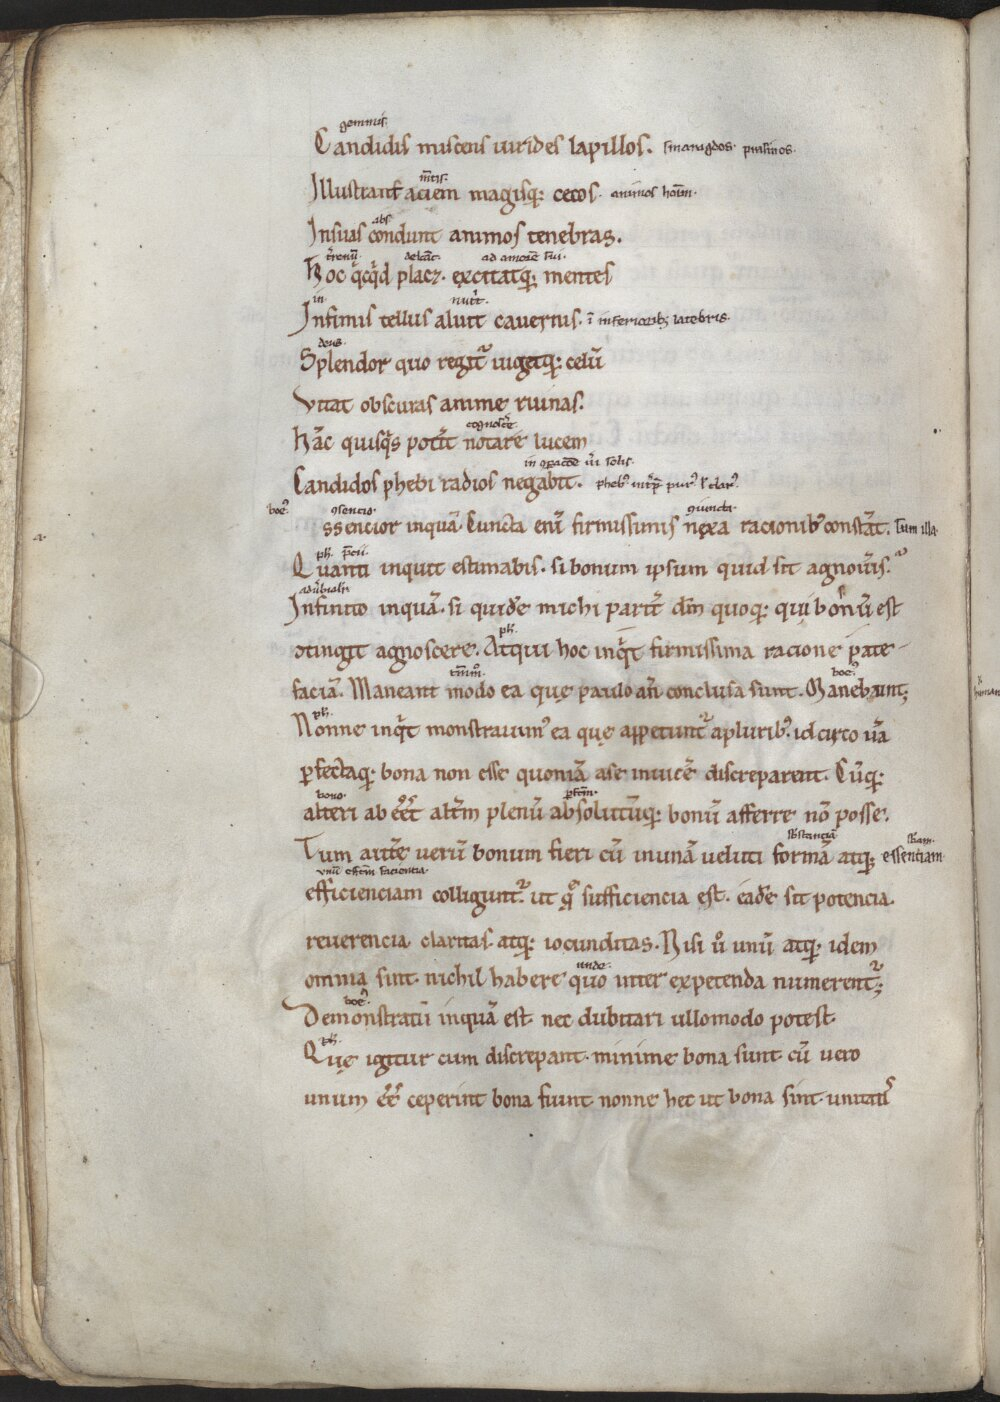 gemmis.
Candidis miscens uirides lapillos. smaragdos. prasinos.
m̅tis.
Illustrant aciem magisq; cecos. animos hom̅.
abs
Insuas condunt animos tenebras.
t̅renu̅ delc̅at. ad amore̅ sui.
Hoc q̅cq̅d placꝫ. excitatq; mentes
in nut̅t.
Infimis tellus aluit cauernis. i̅ inferiorib; latebris.
deus.
Splendor quo regit᷑ uigetq; celu̅
Vitat obscuras anime ruinas.
cognosce̅
Ha̅c quisq̅s potit̅ notare lucem
solis.
Candidos phebi radios negabit.
boe᷒. ꝯsencio. ꝯiuncta.
ssencior inqua̅ Cuncta eni̅ firmissimis nexa racionib᷒ consta̅t. tum illa.
ph. p̅cii.
Quanti inquit estimabis. si bonum ipsum quid sit agnoue̅is.
adu̅bialit̅
Infinito inqua̅. si quide̅ michi parit̅ d̅m quoq; qui bonu̅ est
ꝯtingit agnoscere. Atqui hoc inq̅t firmissima racione pate-
ph.
facia̅. Maneant modo ea que̜ paulo an̅ conclusa sunt. Manebunt;
boe᷒.
ph.
Nonne inq̅t monstrauim᷒ ea que̜ appetunt᷑ aplurib᷒. idcirco u̅a
ꝑfectaq; bona non esse quonia̅ ase inuice̅ discreparent. Cu̅q;
bono. ꝑfc̅m.
alteri ab eet̅ alt̅m plenu̅ absolutu̅q; bonu̅ afferre no̅ posse.
sb̅stancia̅ sb̅am.
Tum aute̅ ueru̅ bonum fieri cu̅ inuna̅ ueluti forma̅ atq; essentiam
unu̅ effc̅m facientia.
efficienciam colligunt᷑. ut que̜ sufficiencia est. eade̅ sit potencia.
reuerencia claritas atq; iocunditas. Nisi u̅o unu̅ atq; idem
unde.
omnia sint nichil habere quo inter expetenda numerent᷑;
boe᷒.
Demonstratu̅ inqua̅ est. nec dubitari ullomodo potest.
ph.
Que̜ igitur cum discrepant. minime bona sunt. cu̅ uero
unum ee̅ ceperint bona fiunt. nonne hec ut bona sint. unitatis